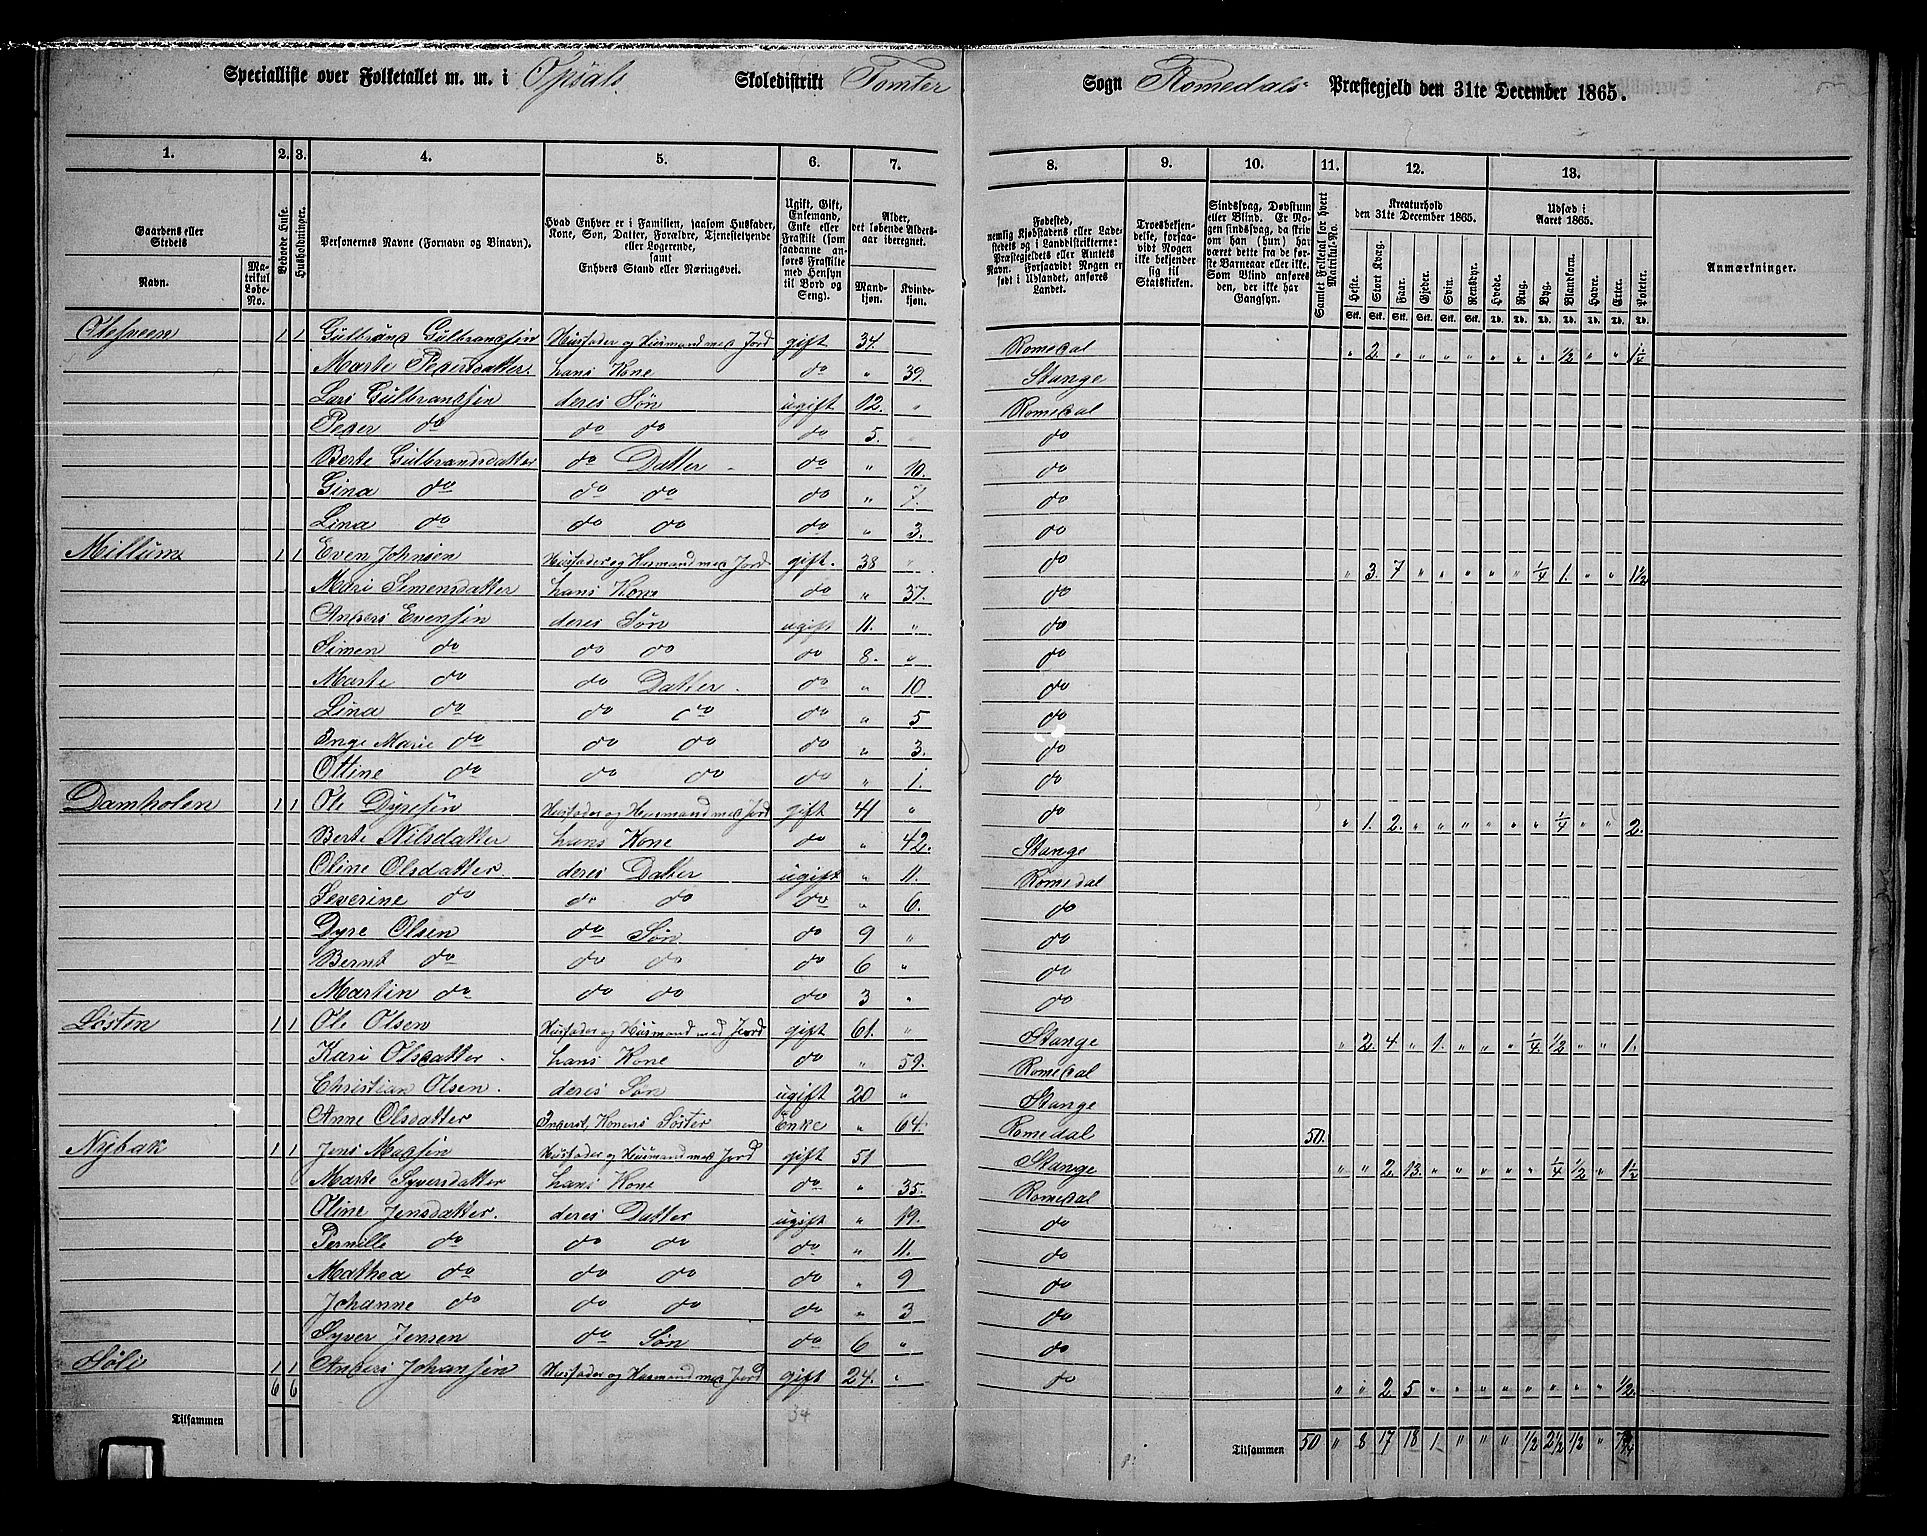 Specialliste over Folketallet m. m. i Opsals Skoledistrikt Tomter Sogn Romedals Præstegjeld den 31te December 1865.
1. 2. 3. 4. 5. 6. 7. 8. 9. 10. 11. 12. 13.
Gaardens eller Stedets Navn. Matrikul Løbe-No. Beboede Huse. Husholdninger. Personernes Navne (Fornavn og Binavn). Hvad Enhver er i Familien, saasom Husfader, Kone, Søn, Datter, Forældre, Tjenestetyende eller Logerende, samt Enhvers Stand eller Næringsvei. Ugift, Gift, Enkemand, Enke eller Fraskilt (som saadanne anføres Fraskilte med Hensyn til Bord og Seng). Alder, det løbende Alders-aar iberegnet. Mandkjøn. Kvindekjøn.
Fødested, nemlig Kjøbstadens eller Ladestedets og i Landdistrikterne: Præstegjeldets eller Amtets Navn. Forsaavidt Nogen er født i Udlandet, anføres Landet. Troesbekjendelse, forsaavidt Nogen ikke bekjender sig til Statskirken. Sindssvag, Døvstum eller Blind. Er Nogen sindssvag, da skrives om han (hun) har været dette fra de første Barneaar eller ikke. Som Blind anføres den, der ikke har Gangsyn. Samlet Folketal for hvert Matrikul-No. Kreaturhold den 31te December 1865. Heste. Stort Kvæg. Faar. Gjeder. Svin. Rensdyr. Udsæd i Aaret 1865. Hvede. Rug. Byg. Blandkorn. Havre. Erter. Poteter. Anmærkninger.
Olesveen 1 1 Gulbrand Gulbrandsen Husfader og Husmand med Jord gift 34. Romedal " 2. " " " " " " " ½ " " 1¼
Marte Pedersdatter. hans Kone do " 39. Stange
Lars Gulbrandsen deres Søn ugift 12. " Romedal
Peder do do do do 5. " do
Berte Gulbrandsdatter do Datter do " 10. do
Gina do do do do " 7. do
Lina do do do do " 3. do
Millum 1 1 Even Johnsen Husfader og Husmand med Jord gift. 38 " do " 3. 7 " " " " " ¼ 1. " " 1½
Mari Simensdatter hans Kone do " 37. do
Anders Evensen deres Søn ugift 11. " do
Simen do do do do 8. " do
Marte do do Datter do " 10 do
Lina do do do do " 5 do
Inge Marie do do do do " 3. do
Ottine do do do do " 1. do
Damholen 1 1 Ole Dyresen Husfader og Husmand med Jord gift 41 " do " 1. 2. " " " " " " ¼ " " 2.
Berte Nilsdatter hans Kone do " 42. Stange
Oline Olsdatter. deres Datter ugift " 11. Romedal
Severine do do do do " 6. do
Dyre Olsen do Søn do 9 " do
Bernt do do do do 6 " do
Martin do do do do 3 " do
Losten 1 1 Ole Olsen Husfader og Husmand med Jord gift 61. " Stange " 2. 4 " 1. " " " ¼ ½ " " 1.
Kari Olsdatter hans Kone do " 59. Romedal
Christian Olsen. deres Søn ugift 20 " Stange
Anne Olsdatter Inderst, Konens Søster Enke " 64. Romedal 50.
Nybak 1 1 Jens Madsen Husfader og Husmand med Jord gift 51 Stange " " 2. 13. " " " " " ¼ ½ " 1½
Marte Syversdatter hans Kone do " 35. Romedal
Oline Jensdatter. deres Datter ugift " 19. do
Pernille do do do do " 11. do
Mathea do do do do " 9 do
Johanne do do do do " 3 do
Syver Jensen do Søn do 6 " do
Holi 1 1 Anders Johansen Husfader og Husmand med Jord gift 24. " do " " 2 5 " " " " " " " " ½
6 6
34
Tilsammen
Tilsammen 50 " 8 17 18 1 " " " ½ 2½ ½ " 7¾